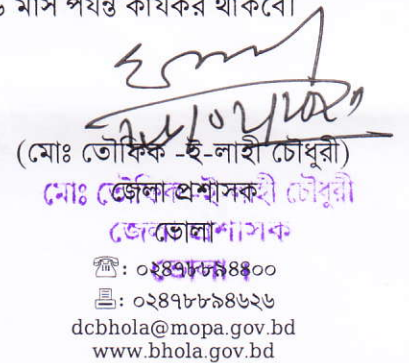 মাস পর্যন্ত কার্যকর থাকবে।
(মোঃ তৌফিক -ই-লাহী চৌধুরী)
মোঃ তৌফিক-ই-লাহী চৌধুরী
জেলা প্রশাসক
জেলা প্রশাসক
ভোলা
ভোলা।
☎: ০২৪৭৮৮৯৪৪০০
📠: ০২৪৭৮৮৯৪৬২৬
dcbhola@mopa.gov.bd
www.bhola.gov.bd